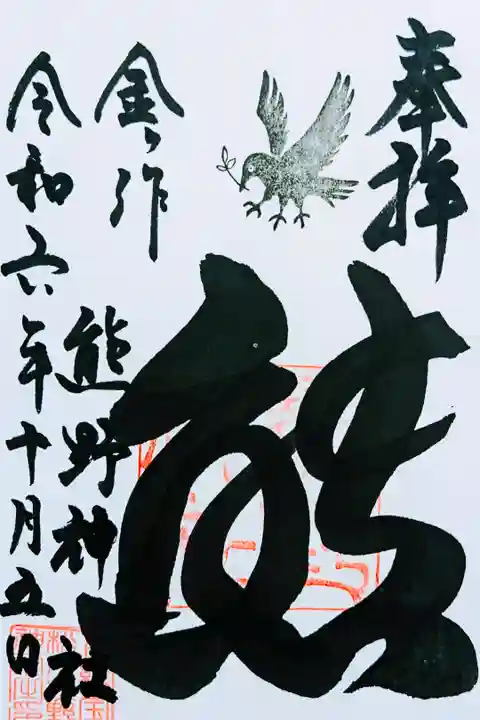 奉拝
熊
金ヶ作
熊野神社
令和六年十月五日